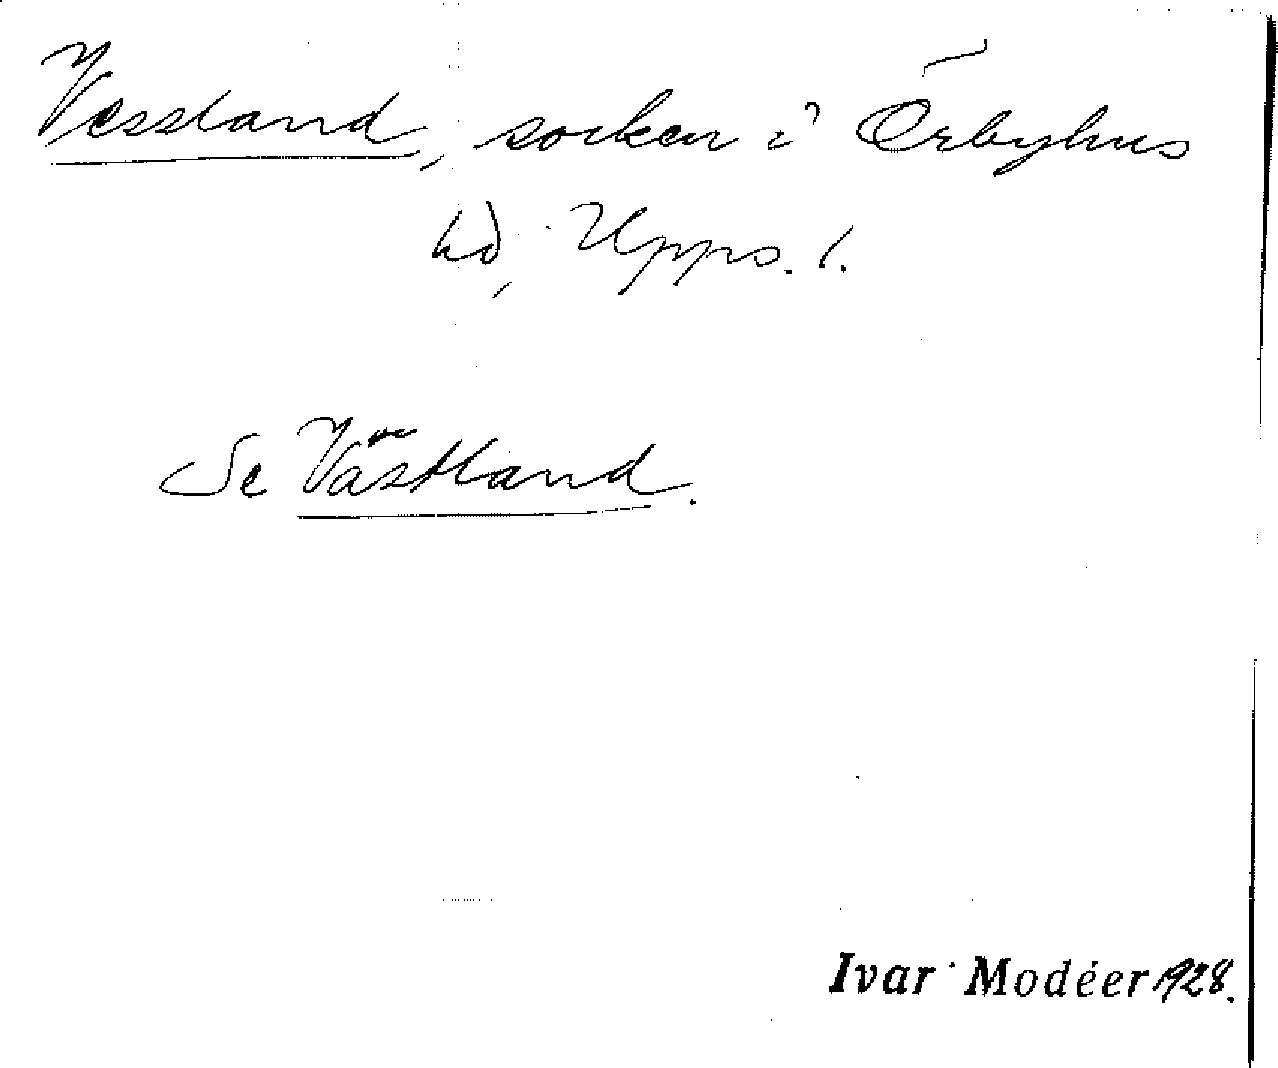 Vessland, socken i Örbyhus
hd, Upps. l.
Se Västland.
Ivar Modéer 1928.